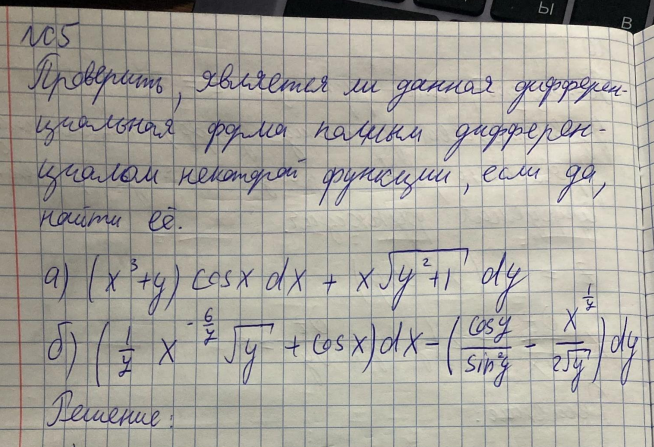 Ы
В
№5
Проверить, является ли данная дифферен-
циальная форма полным дифферен-
циалом некоторой функции, если да,
найти её.
а) (x³+y) cosx dx + x√(y²+1) dy
б) (1/7 x^(-6/7) √y + cosx)dx - (cosy/sin²y - x^(1/7)/(2√y))dy
Решение: